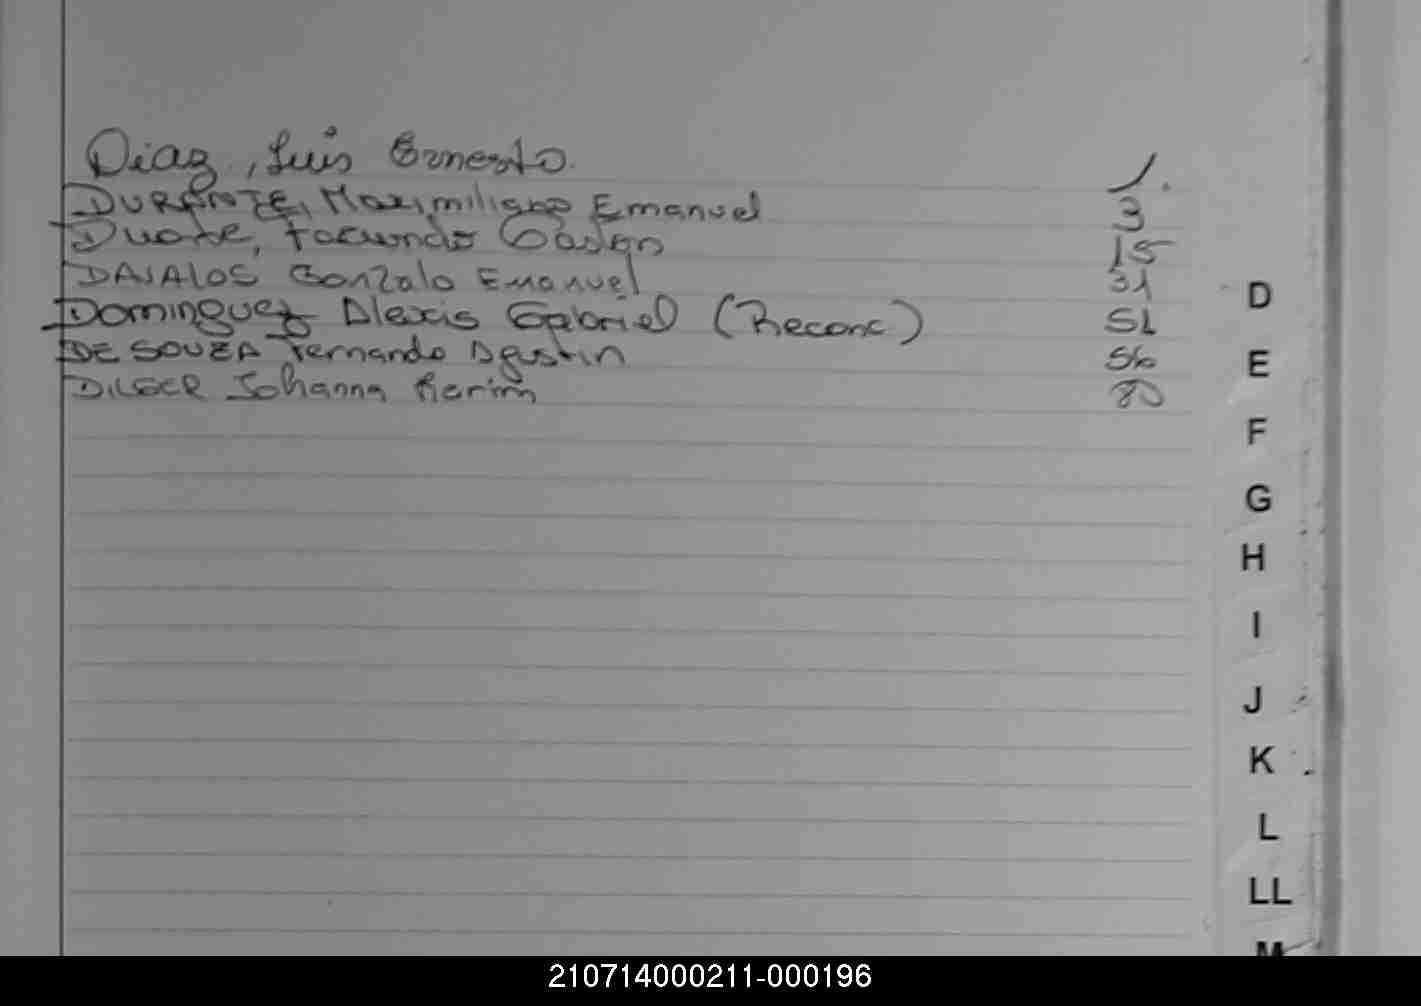 Diaz, Luis Ernesto. 1.
DURANTE, Maximiliano Emanuel 3
Duarte, Facundo Gaston 15
DAVALOS Gonzalo Emanuel 31
Dominguez Alexis Gabriel (Reconc.) 51
DE SOUZA Fernando Agustin 56
DILGER Johanna Karim 80
D
E
F
G
H
I
J
K
L
LL
M
210714000211-000196